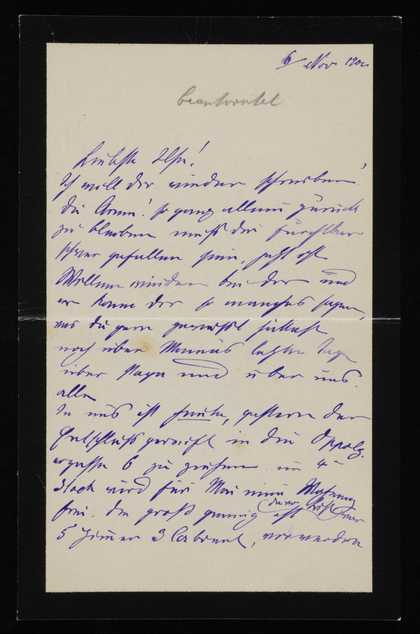 6/ Nov 190
beantwortet
Liebste Ilse!
Ich will dir wieder schreiben,
du Arme! so ganz allein zurück
zu bleiben muß dir furchtbar
schwer gefallen sein, jetzt ist
wieder bei dir und
er kann dir so manches sagen,
was du gern
noch über Mamas letzte Tage
über Papa und über uns
alle
In uns ist heute, gestern der
Entschluß gereift in die Oppolz
ergasse 6 zu ziehen im 4
Stock wird für Mai eine Wohnung
frei. Sie groß genug ist
5 Zimmer 3 Cabinet,